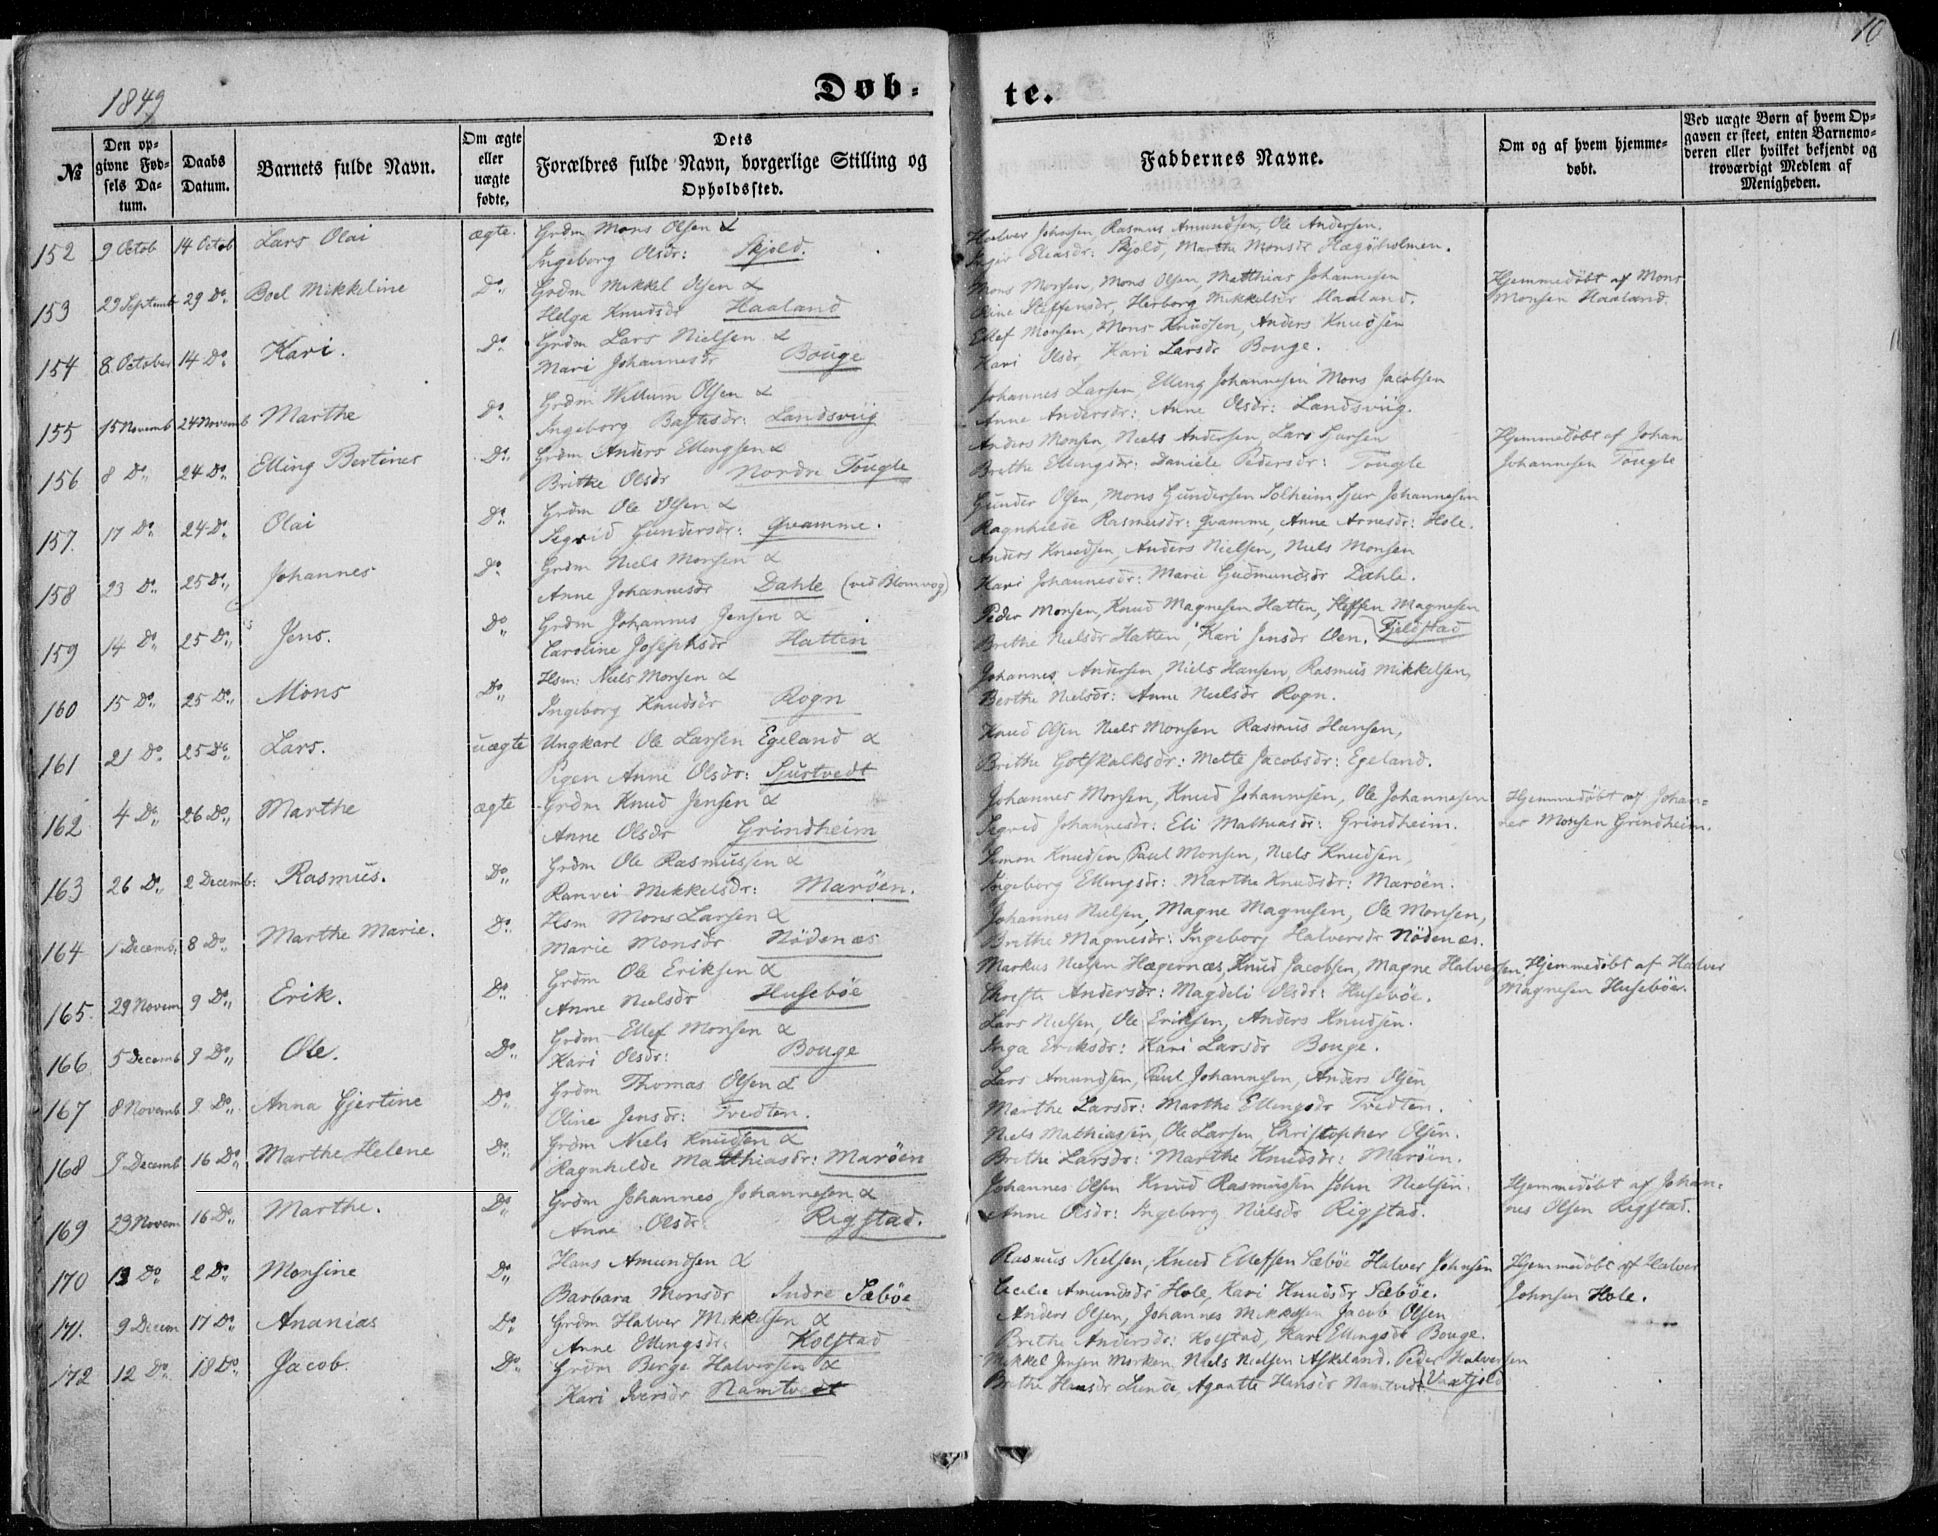 10
1849
Døb-
te.
№
Den opgivne Fødsels Datum.
Daabs Datum.
Barnets fulde Navn.
Om ægte eller uægte fødte,
Dets Forældres fulde Navn, borgerlige Stilling og Opholdssted.
Faddernes Navne.
Om og af hvem hjemmedøbt.
Ved uægte Børn af hvem Opgaven er skeet, enten Barnemoderen eller hvilket bekjendt og troværdigt Medlem af Menigheden.
152 9 Octob 14 Octob Lars Olai ægte. Grdm Mons Olsen &
Ingeborg Olsdr: Skjold.
Halver Johnsen, Rasmus Amundsen, Ole Andersen.
Inger Eliasdr: Skjold, Marthe Monsdr Hægöholmen.
153 29 Septemb 29 Do. Boel Mikkeline Do. Grdm Mikkel Olsen &
Helga Knudsdr Haaland
Mons Monsen, Mons Olsen, Matthias Johannesen
Oline Steffensdr, Herborg Mikkelsdr Haaland.
Hjemmedøbt af Mons
Monsen Haaland.
154 8 October 14 Do. Kari. Do. Grdm Lars Nielsen &
Mari Johannesdr Bouge
Ellef Monsen, Mons Knudsen, Anders Knudsen
Kari Olsdr, Kari Larsdr Bouge.
155 15 Novemb 24 Novemb Marthe Do. Grdm Willum Olsen &
Ingeborg Landsviig
Johannes Larsen, Elling Johannesen Mons Jacobsen
Anne Andersdr: Anne Olsdr: Landsviig.
156 8 Do. 24 Do. Elling Bertines Do. Grdm Anders Ellingsen &
Brithe Olsdr Nordre Tougle
Anders Monsen, Niels Andersen, Lars Sjursen
Brethe Ellingsdr: Daniele Pedersdr: Tougle
Hjemmedøbt af Johan
Johannesen Tougle
157. 17 Do. 24 Do. Olai Do. Grdm Ole Olsen &
Segrid Gundersdr: Qvamme.
Gunder Olsen, Mons Gundersen Solheim Sjur Johannesen
Ragnhilde Rasmusdr: Qvamme, Anne Arnesdr: Hole.
158 23 Do. 25 Do. Johannes Do. Grdm Niels Monsen &
Anne Johannesdr Dahle (ved Blomvog)
Anders Knudsen, Anders Nielsen, Niels Monsen
Kari Johannesdr: Marie Gudmundsdr Dahle.
159 14 Do. 25 Do. Jens. Do. Grdm Johannes Jensen &
Caroline Josephsdr Hatten
Peder Monsen, Knud Magnesen Hatten, Steffen Magnesen
Brethe Nielsdr Hatten, Kari Jensdr Oen. Fjeldstad
160 15 Do. 25 Do. Mons Do. Hsm: Niels Monsen &
Ingeborg Knudsdr Rogn
Johannes Andersen, Niels Hansen, Rasmus Mikkelsen,
Berthe Nielsdr: Anne Nielsdr Rogn.
161 21 Do. 25 Do. Lars. uægte Ungkarl Ole Larsen Egeland &
Pigen Anne Olsdr: Sjurtvedt
Knud Olsen Niels Monsen Rasmus Hansen,
Brithe Gotskalksdr: Mette Jacobsdr: Egeland.
162 4 Do. 26 Do. Marthe ægte Grdm Knud Jensen &
Anne Olsdr Grindheim
Johannes Monsen, Knud Johannesen, Ole Johannesen
Segrid Johannesdr: Eli Mathiasdr: Grindheim.
Hjemmedøbt af Johan-
nes Monsen Grindheim.
163 26 Do. 2 Decemb: Rasmus. Do. Grdm Ole Rasmussen &
Ranvei Mikkelsdr: Marøen.
Simon Knudsen, Paul Monsen, Niels Knudsen,
Ingeborg Ellingsdr: Marthe Knudsdr: Marøen.
164 1 Decemb. 8 Do. Marthe Marie. Do. Hsm Mons Larsen &
Marie Monsdr Nødenæs
Johannes Nielsen, Magne Magnesen, Ole Monsen,
Brithe Magnesdr: Ingeborg Halversdr Nødenæs.
165. 29 Novem 9 Do. Erik. Do. Grdm Ole Eriksen &
Anne Nielsdr Husebøe
Markus Nielsen Hægernæs, Knud Jacobsen, Magne Halversen,
Christi Andersdr: Magdeli Olsdr: Husebøe.
Hjemmedøbt af Halver
Magnesen Husebøe.
166 5 Decemb 9 Do. Ole. Do. Grdm Ellef Monsen &
Kari Olsdr: Bouge
Lars Nielsen, Ole Eriksen, Anders Knudsen.
Inga Eriksdr: Kari Larsdr Bouge.
167 8 Novemb 9 Do. Anna Gjertine Do. Grdm Thomas Olsen &
Oline Jensdr: Tvedten.
Lars Amundsen, Paul Johannesen, Anders Olsen
Marthe Larsdr: Marthe Ellingsdr Tvedten.
168 9 Decemb 16 Do. Marthe Helene Do. Grdm Niels Knudsen &
Ragnhilde Matthiasdr: Marøen
Niels Mathiassen, Ole Larsen, Christopher Olsen.
Brethe Larsdr: Marthe Knudsdr: Marøen.
169 29 Novem 16 Do. Marthe. Do. Grdm Johannes Johannesen &
Anne Olsdr: Rigstad.
Johannes Olsen Knud Rasmussen John Nielsen.
Anne Olsdr: Ingeborg Nielsdr Rigstad.
Hjemmedøbt af Johan-
nes Olsen Rigstad.
170 13 Do. 2 Do. Monsine Do. Hans Amundsen &
Barbara Monsdr Indre Sæbøe
Rasmus Nielsen, Knud Ellefsen Sæbøe Halver Johnsen
Cecilie Amundsdr Hole, Kari Knudsdr Sæbøe.
Hjemmedøbt af Halver
Johnsen Hole.
171. 9 Decem 17 Do. Ananias Do. Grdm Halver Mikkelsen &
Anne Ellingsdr: Kolstad
Anders Olsen, Johannes Mikkelsen Jacob Olsen
Brethe Andersdr: Kolstad, Kari Ellingsdr Bouge.
172 12 Do. 18 Do. Jacob. Do. Grdm Berge Halversen &
Kari Iversdr Namtvedt
Mikkel Jensen Morken, Niels Nielsen Askeland. Peder Halversen
Brithe Hansdr Lunde, Agaatte Hansdr Namtvedt.